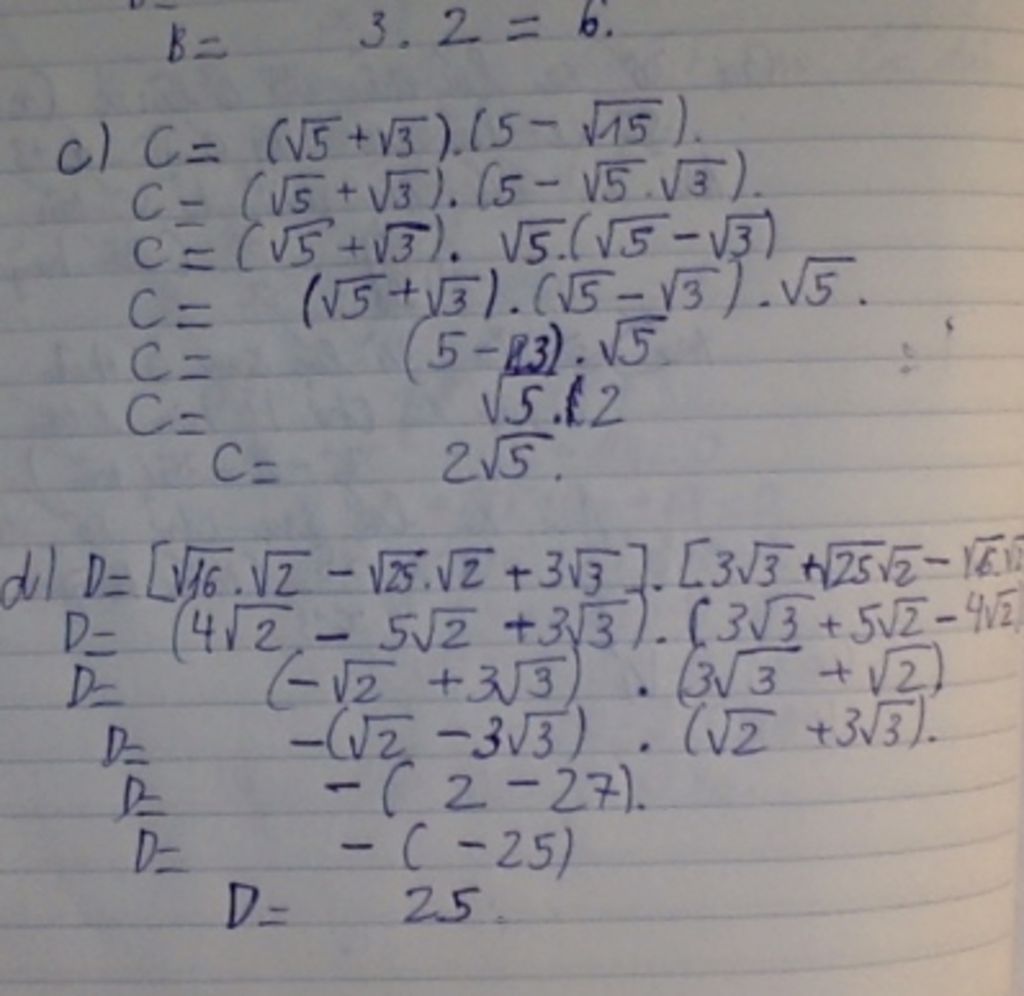 B = 3 . 2 = 6.
c) C = (√5 + √3).(5 - √15).
C = (√5 + √3).(5 - √5.√3).
C = (√5 + √3). √5.(√5 - √3)
C = (√5 + √3).(√5 - √3).√5.
C = (5 - 3).√5
C = √5.2
C = 2√5.
d) D = [√16.√2 - √25.√2 + 3√3].[3√3 + √25√2 -
D = (4√2 - 5√2 + 3√3).(3√3 + 5√2 - 4√2)
D = (-√2 + 3√3) . (3√3 + √2)
D = -(√2 - 3√3) . (√2 + 3√3).
D = -(2 - 27).
D = -(-25)
D = 25.